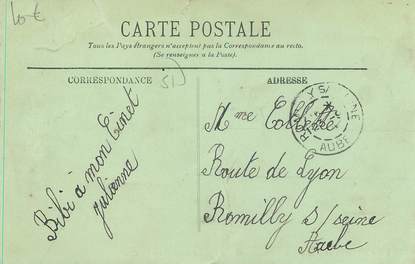 10 €
CARTE POSTALE
Tous les Pays étrangers n'acceptent pas la Correspondance au recto.
(Se renseigner à la Poste).
CORRESPONDANCE
51
ADRESSE
Bibi à mon
Julienne
Mme
Route de Lyon
Romilly s/seine
Aube
AUBE